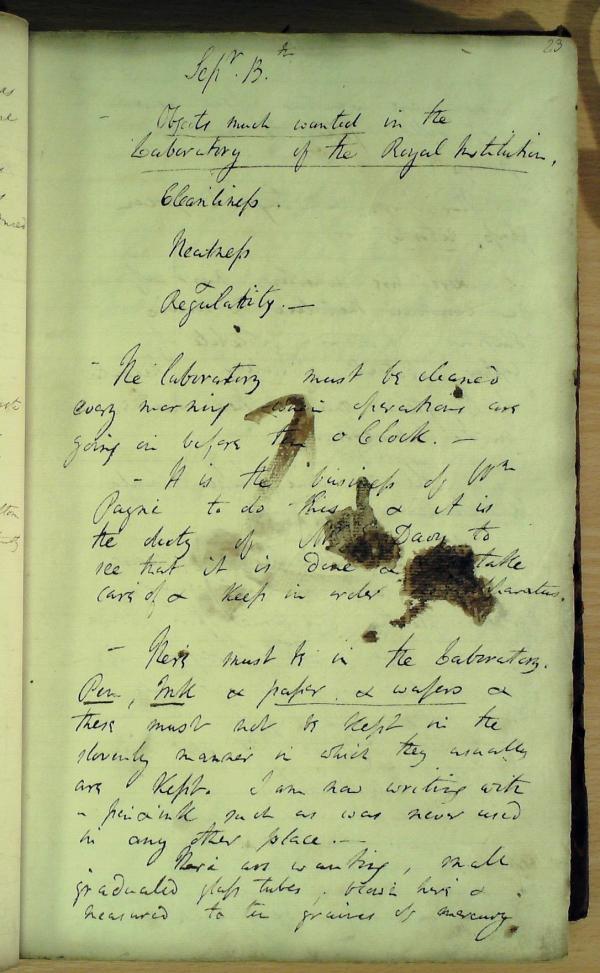 23
Sepr. 13.th
- Objects much wanted in the
Laboratory of the Royal Institution.
Cleanliness.
Neatness
Regularity. —
- The laboratory must be cleaned
every morning when operations are
going on before ten o Clock. —
- It is the business of Wm
Payne to do this & it is
the duty of Mr Davy to
see that it is done & take
care of & keep in order apparatus.
- There must be in the Laboratory.
Pen, Ink & paper & wafers &
these must not be kept in the
slovenly manner in which they usually
are kept. I am now writing with
a pen & ink such as was never used
in any other place. —
There are wanting, small
graduated glass tubes, blown here &
measured to ten grains of mercury.